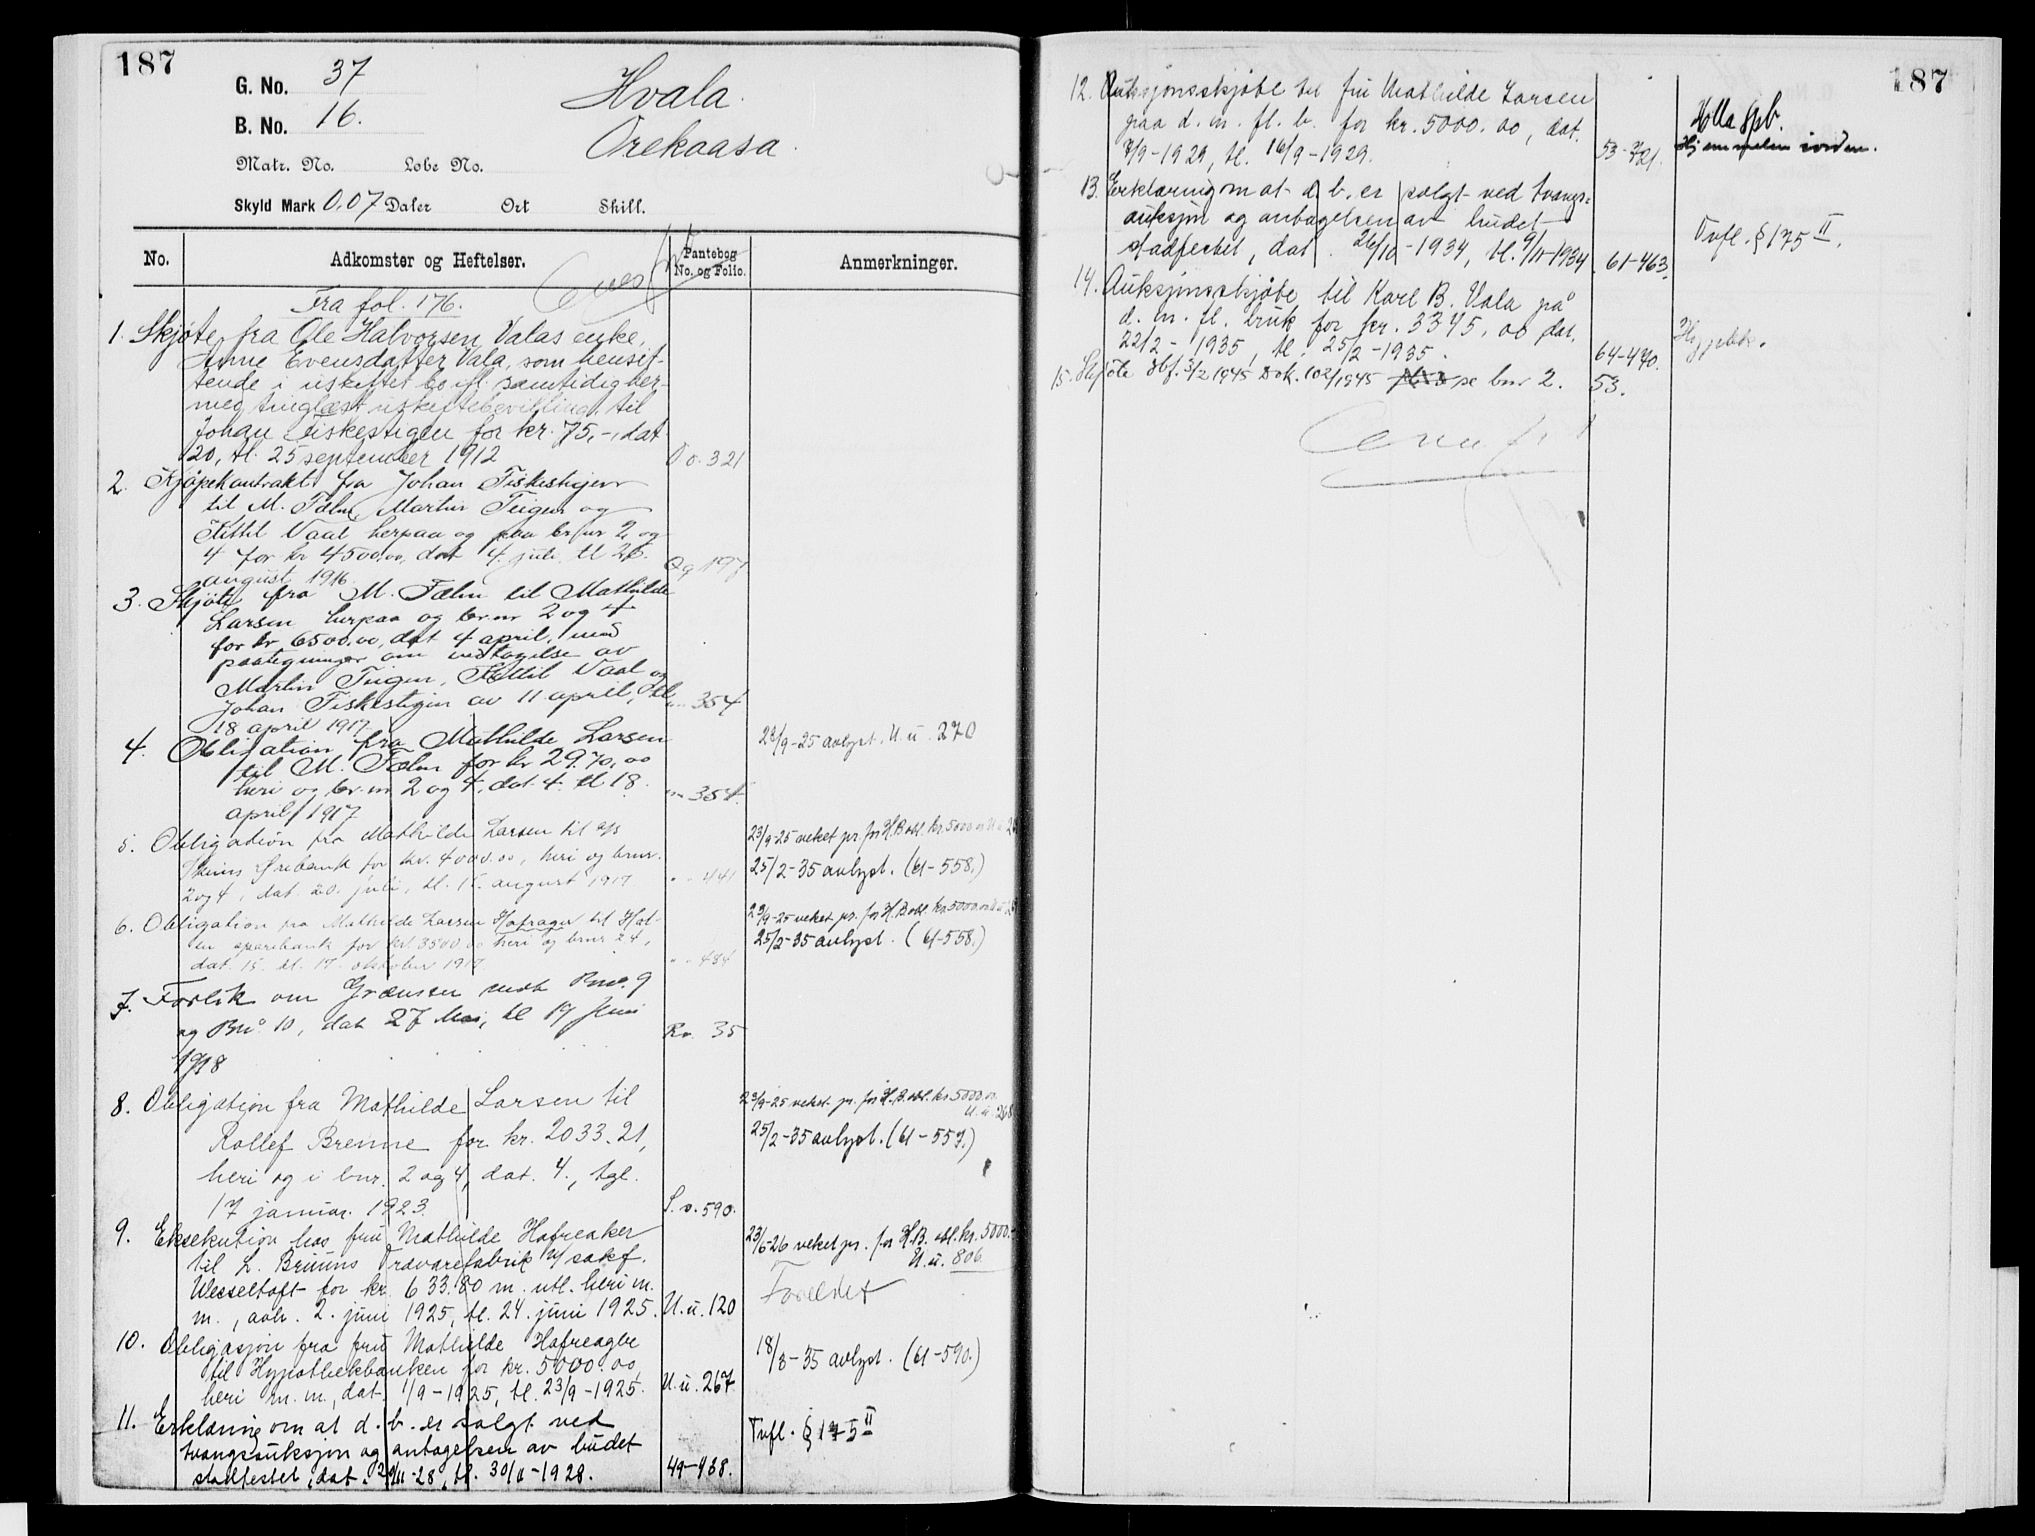 187
G. No. 37
B. No. 16.
Hvala.
Orekaasa.
Matr. No. Lobe No.
Skyld Mark 0,07 Daler Ort Skill.
No. Adkomster og Heftelser. Pantebog No. og Folio. Anmerkninger.
Fra fol. 176.
1. Skjøte fra Ole Halvorsen Valas enke,
Anne Evensdatter Vala, som hensit-
tende i uskiftet bo ifl. samtidig her-
med tinglæst uskiftebevilling, til
Johan Fiskestigen for kr. 75,-, dat
20, tl. 25 september 1912 O o. 321
2. Kjøpekontrakt fra Johan Fiskestigen
til M. Fælm, Martin Teigen og
Kittil Vaal herpaa og paa brnr 2 og
4 for kr 4500.00, dat 4. juli, tl 26.
august 1916. Qq 197
3. Skjøte fra M. Fælm til Mathilde
Larsen herpaa og br.nr 2 og 4
for kr 6500.00, dat 4 april, med
paategninger om vedtagelse av
Martin Teigen, Kittil Vaal og
Johan Fiskestigen av 11 april, tl
18 april 1917 " " 354
4. Obligation fra Mathilde Larsen
til M. Fælm for kr 2970,00
heri og br.nr 2 og 4, dat. 4. tl 18.
april 1917 " " 354.
23/9-25 avlyst. U. u. 270
5. Obligation fra Mathilde Larsen til
Skiens Sparebank for kr. 4000.00, heri og brnr.
2 og 4, dat. 20. juli, tl. 18. august 1917 " " 441
23/9-25 veket pr. for H.B. obl. kr. 5000.00 U. u. 26
25/2-35 avlyst. (61-558.)
6. Obligation fra Mathilde Larsen Hafrager til Hol-
la sparebank for kr. 3500.00 heri og brnr 2 4,
dat. 15. tl. 17. oktober 1917 " " 484
23/9-25 veket pr. for H.B. obl. kr. 5000.00 U. u. 26
25/2-35 avlyst. (61-558.)
7. Forlik om Grænsen mot Bno. 9
og Bno. 10, dat 27 Mai, tl 19 Juni
1918 Rr. 35
8. Obligation fra Mathilde Larsen til
Rollef Brenne for kr. 2033.21,
heri og i bnr. 2 og 4, dat. 4., tgl.
17 januar 1923. S. s. 590.
23/9-25 veket pr. for H.B. obl. kr. 5000.00
U. u. 268
25/2-35 avlyst. (61-557.)
9. Eksekution hos fru Mathilde Hafreaker
til L. Bruuns Trævarefabrik v/ sakf.
Wesseltoft for kr. 633.80 m. utl. heri m.
m., avh. 2. juni 1925, tl. 24. juni 1925. U. u. 120
23/6-26 veket pr. for H.B. obl. kr. 5000.-
U. u. 806
Foreldet
10. Obligasjon fra fru Mathilde Hafreager
til Hypothekbanken for kr. 5000.00,
heri m. m., dat. 1/9-1925, tl. 23/9-1925. U. u. 267
18/3-35 avlyst. (61-590.)
11. Erklæring om at d. b. er solgt ved
tvangsauksjon og antagelsen av budet
stadfestet, dat. /11-28, tl. 30/11-1928. 49-438.
Tvfl. § 175 II
187
12. Auksjonsskjøte til fru Mathilde Larsen
paa d. m. fl. b. for kr. 5000.00, dat.
7/9-1929, tl. 16/9-1929. 53-
Holla spb.
Hjemmelen i orden.
13. Erklæring om at d. b. er solgt ved tvangs-
auksjon og antagelsen av budet
stadfestet, dat. 26/10-1934, tl. 9/11-1934. 61-463.
Tvfl. § 175 II.
14. Auksjonsskjøte til Karl B. Vala på
d. m. fl. bruk for kr. 3345,00 dat.
22/2-1935, tl. 25/2-1935. 64-470.
Hypbk.
15. Skjøte dbf. 3/2 1945 Dok. 102/1945 se bnr 2. 53.